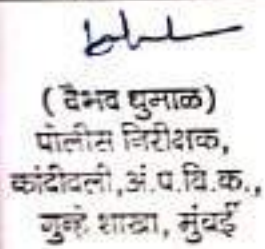 ( वैभव धुमाळ)
पोलीस निरीक्षक,
कांदीवली,अं.प.वि.क.,
गुन्हे शाखा, मुंबई